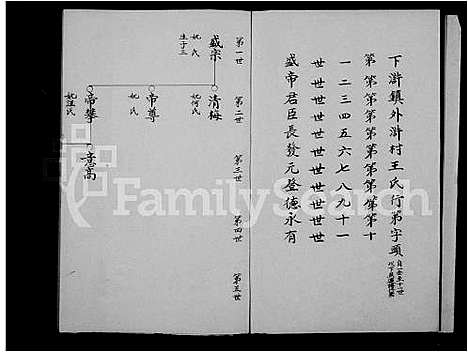 下滸鎮外滸村王氏行第字頭
第第第第第第第第第第十
一二三四五六七八九十一
世世世世世世世世世世世
盛帝君臣長發元登德永有
第一世
第二世
第三世
第四世
第五世
盛宗
妣氏
生子三
清梅
妣何氏
帝尊
妣氏
帝攀
妣汪氏
意高
FamilySearch